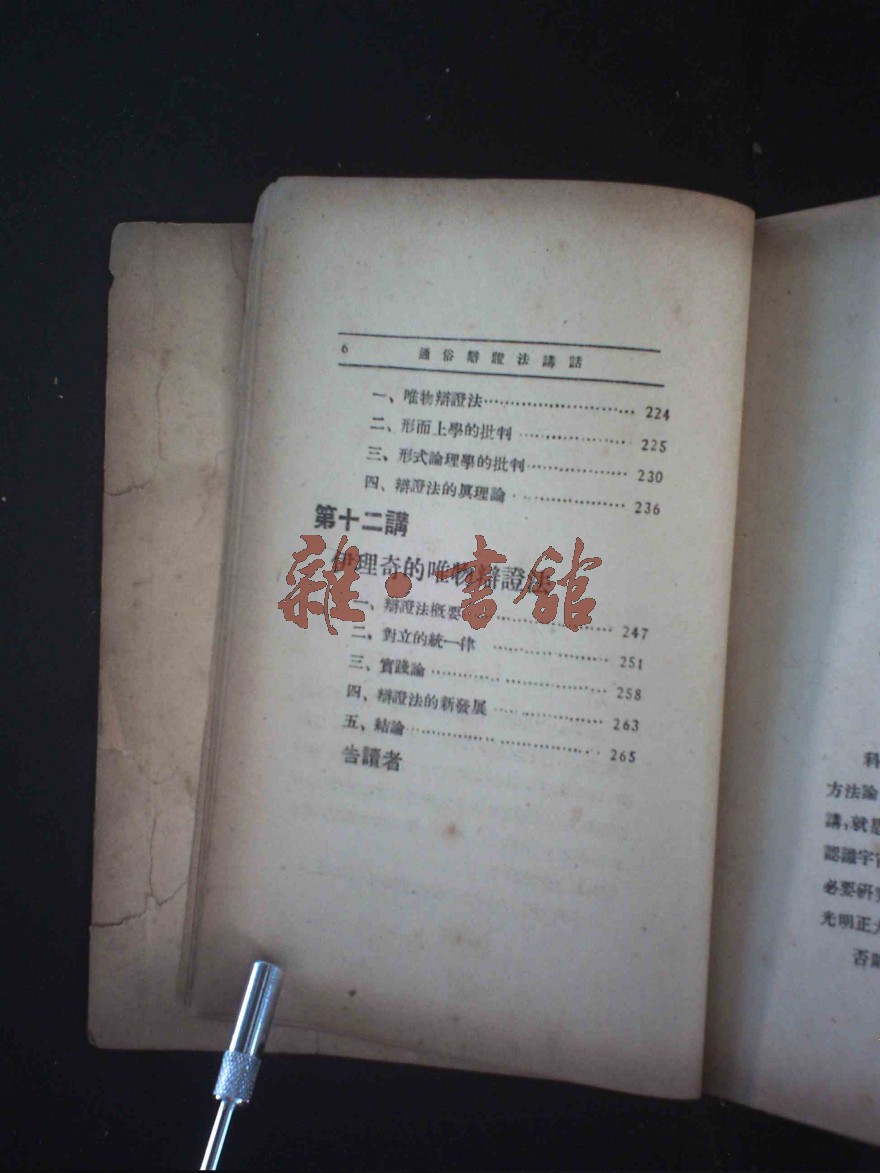 6 通俗辯證法講話
一、唯物辯證法 224
二、形而上學的批判 225
三、形式論理學的批判 230
四、辯證法的眞理論 236
第十二講
伊理奇的唯物辯證法
一、辯證法概要 247
二、對立的統一律 251
三、實踐論 258
四、辯證法的新發展 263
五、結論 265
告讀者
雜·書館
科
方法論
講，就是
認識宇宙
必要研究
光明正大
否